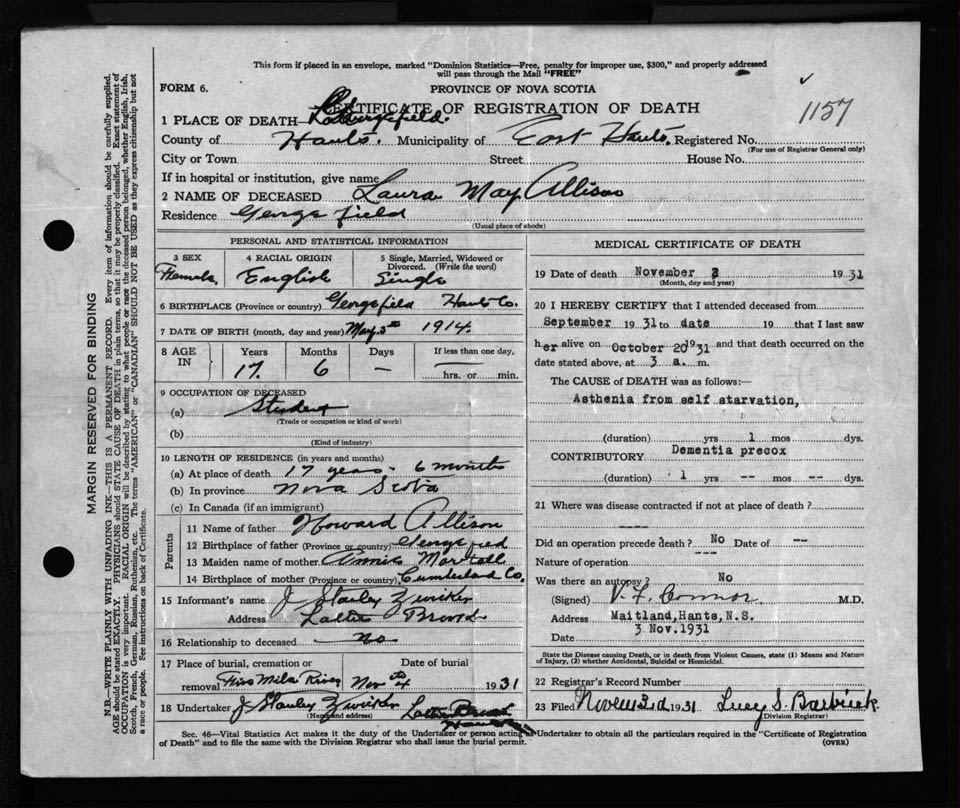 This form if placed in an envelope, marked "Dominion Statistics—Free, penalty for improper use, $300," and properly addressed
will pass through the Mail "FREE"
FORM 6.
PROVINCE OF NOVA SCOTIA
1157
CERTIFICATE OF REGISTRATION OF DEATH
1 PLACE OF DEATH Georgefield.
County of Hants. Municipality of East Hants. Registered No.
(For use of Registrar General only)
City or Town Street House No.
If in hospital or institution, give name
2 NAME OF DECEASED Laura May Allison
Residence Georgefield
(Usual place of abode)
PERSONAL AND STATISTICAL INFORMATION
3 SEX 4 RACIAL ORIGIN 5 Single, Married, Widowed or Divorced. (Write the word)
Female English Single
6 BIRTHPLACE (Province or country) Georgefield Hants Co.
7 DATE OF BIRTH (month, day and year) May 3rd 1914.
8 AGE IN Years Months Days If less than one day,
17. 6 — hrs. or min.
9 OCCUPATION OF DECEASED
(a) Student
(Trade or occupation or kind of work)
(b)
(Kind of industry)
10 LENGTH OF RESIDENCE (in years and months)
(a) At place of death 17 years - 6 months
(b) In province Nova Scotia
(c) In Canada (if an immigrant)
Parents
11 Name of father Howard Allison
12 Birthplace of father (Province or country) Georgefield
13 Maiden name of mother Annie
14 Birthplace of mother (Province or country) Cumberland Co.
15 Informant's name J Stanley Zwicker
Address Latties Brook
16 Relationship to deceased no
17 Place of burial, cremation or removal Date of burial
Five Mile River Nov 4th 1931
18 Undertaker J Stanley Zwicker Latties Brook
(Name and address) Hants
MEDICAL CERTIFICATE OF DEATH
19 Date of death November 3 1931
(Month, day and year)
20 I HEREBY CERTIFY that I attended deceased from
September 1931 to date 19 that I last saw
her alive on October 20 1931 and that death occurred on the
date stated above, at 3 a. m.
The CAUSE of DEATH was as follows:—
Asthenia from self starvation,
(duration) yrs 1 mos dys.
CONTRIBUTORY Dementia precox
(duration) 1 yrs -- mos -- dys.
21 Where was disease contracted if not at place of death?
----
Did an operation precede death? No Date of --
Nature of operation ---
Was there an autopsy? No
(Signed) V. F. Connor M.D.
Address Maitland, Hants, N.S.
Date 3 Nov. 1931
State the Disease causing Death, or in death from Violent Causes, state (1) Means and Nature
of Injury, (2) whether Accidental, Suicidal or Homicidal.
22 Registrar's Record Number
23 Filed November 3rd 1931 Lucy S. Barbrick
(Division Registrar)
Sec. 46—Vital Statistics Act makes it the duty of the Undertaker or person acting as Undertaker to obtain all the particulars required in the "Certificate of Registration
of Death" and to file the same with the Division Registrar who shall issue the burial permit. (OVER)
MARGIN RESERVED FOR BINDING
N.B.—WRITE PLAINLY WITH UNFADING INK—THIS IS A PERMANENT RECORD. Every item of information should be carefully supplied.
AGE should be stated EXACTLY. PHYSICIANS should STATE CAUSE OF DEATH in plain terms, so that it may be properly classified. Exact statement of
OCCUPATION is very important. RACIAL ORIGIN will be described by stating to what people or race the deceased person belonged, whether English, Irish,
Scotch, French, German, Russian, Ruthenian, etc. The terms "AMERICAN" or "CANADIAN" SHOULD NOT BE USED as they express citizenship but not
a race or people. See instructions on back of Certificate.